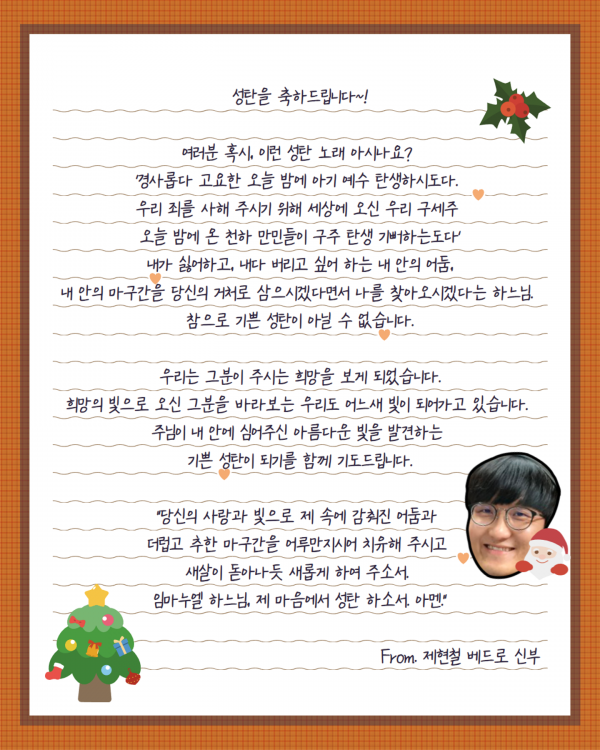 성탄을 축하드립니다~!
여러분 혹시, 이런 성탄 노래 아시나요?
'경사롭다 고요한 오늘 밤에 아기 예수 탄생하시도다.
우리 죄를 사해 주시기 위해 세상에 오신 우리 구세주
오늘 밤에 온 천하 만민들이 구주 탄생 기뻐하는도다'
내가 싫어하고, 내다 버리고 싶어 하는 내 안의 어둠,
내 안의 마구간을 당신의 거처로 삼으시겠다면서 나를 찾아오시겠다는 하느님.
참으로 기쁜 성탄이 아닐 수 없습니다.
우리는 그분이 주시는 희망을 보게 되었습니다.
희망의 빛으로 오신 그분을 바라보는 우리도 어느새 빛이 되어가고 있습니다.
주님이 내 안에 심어주신 아름다운 빛을 발견하는
기쁜 성탄이 되기를 함께 기도드립니다.
"당신의 사랑과 빛으로 제 속에 감춰진 어둠과
더럽고 추한 마구간을 어루만지시어 치유해 주시고
새살이 돋아나듯 새롭게 하여 주소서.
임마누엘 하느님, 제 마음에서 성탄 하소서. 아멘."
From. 제현철 베드로 신부